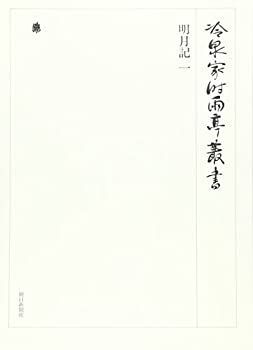 冷泉家時雨亭叢書
明月記 一
朝日新聞社